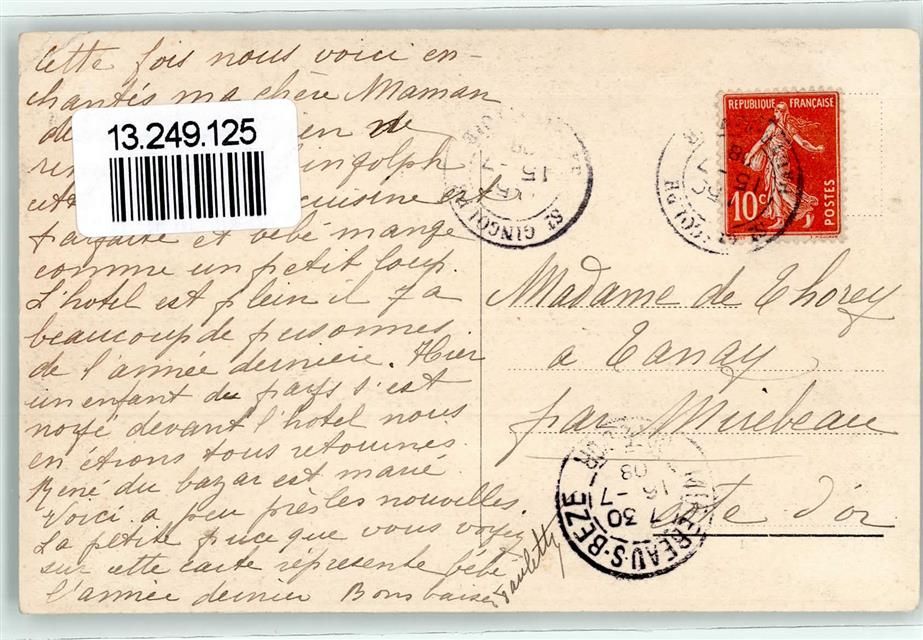 Cette fois nous voici en-
chantés ma chère Maman
de
cuisine est
parfaite et bébé mange
comme un petit loup.
L'hotel est plein il y a
beaucoup de personnes
de l'année dernière. Hier
un enfant du pays s'est
noyé devant l'hotel nous
en étions tous retournés.
René du bazar est marié
Voici a peu près les nouvelles.
La petite puce que vous voyez
sur cette carte représente bébé
l'année dernier Bons baisers
Paulette
13.249.125
ST GINGOLPH
15 -7
REPUBLIQUE FRANÇAISE
10c
POSTES
15 -7
Madame de Thorey
a Tanay
par Mirebeau
Côte d'or
MIREBEAU-S-BEZE
7 30
16 -7
08